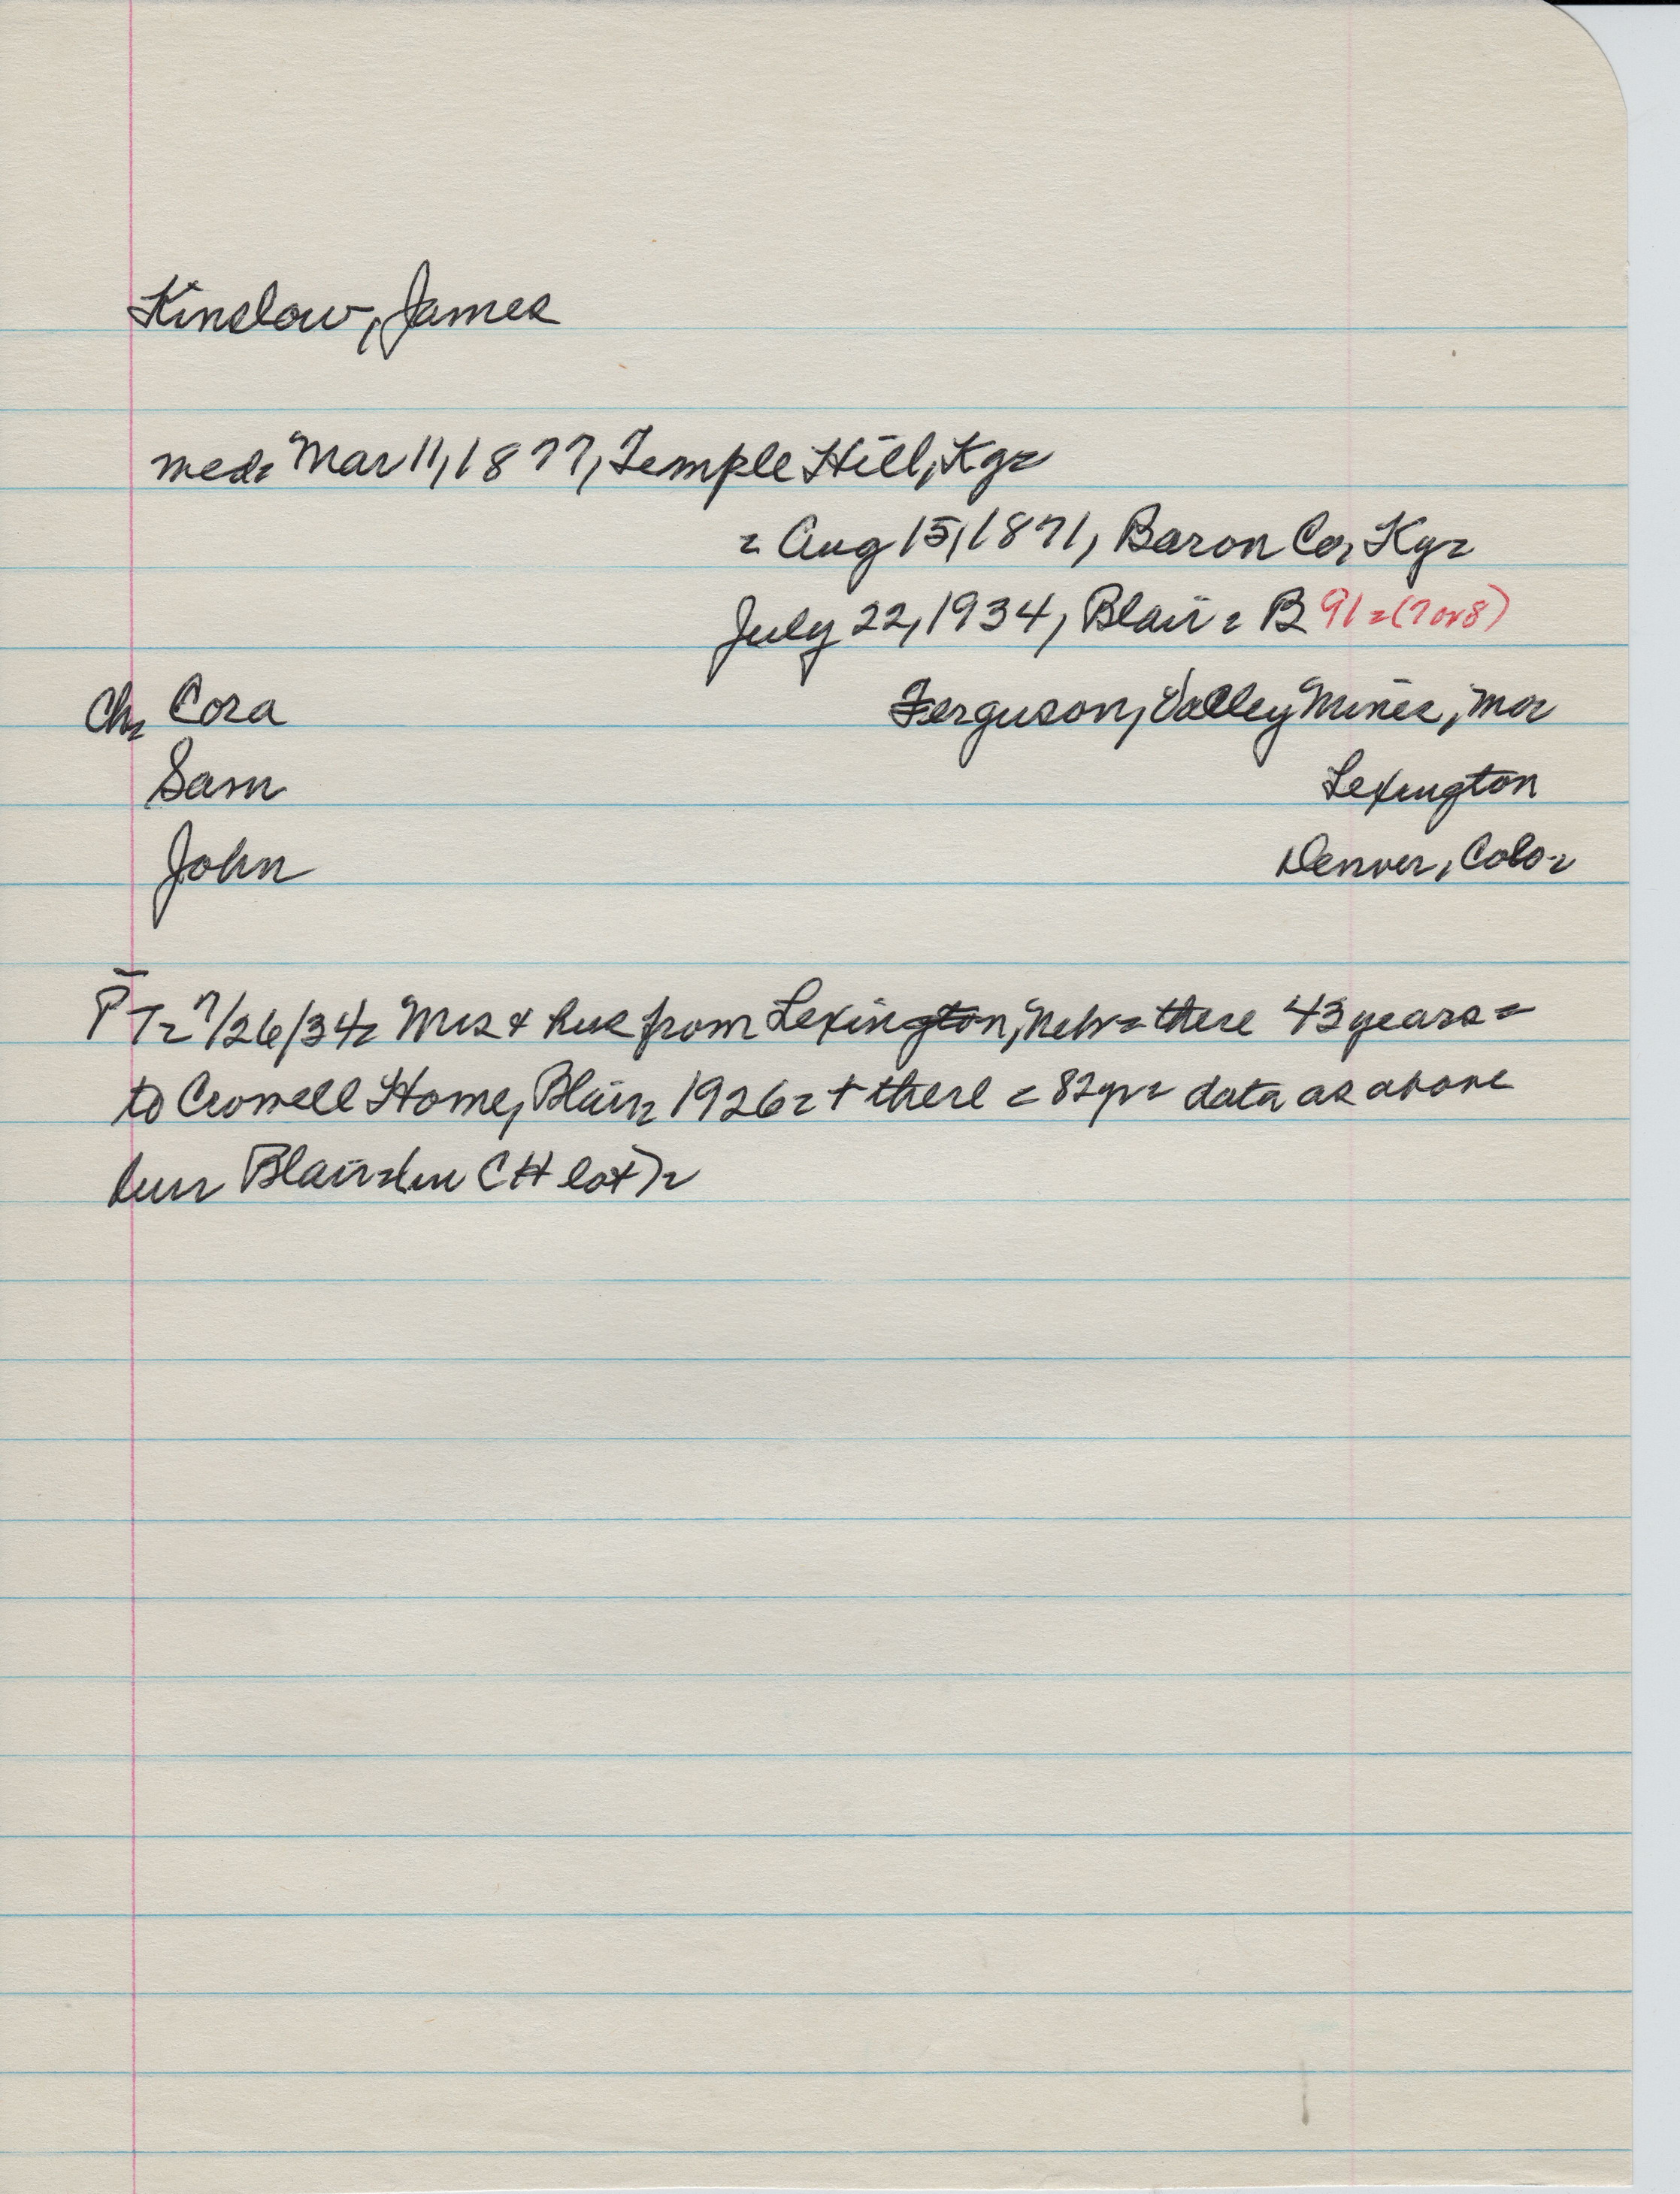 Kinslow, James
med= Mar 11, 1877, Temple Hill, Ky=
= Aug 15, 1871, Baron Co, Ky=
July 22, 1934, Blair = B 91 = (7 or 8)
Ch= Cora Ferguson, Valley Mines, Mo=
Sam Lexington
John Denver, Colo=
PT= 7/26/34= Mrs & hus from Lexington, Neb= there 43 years=
to Crowell Home, Blair= 1926= + there = 82 yr= data as above
bur= Blair= (in CH lot)=